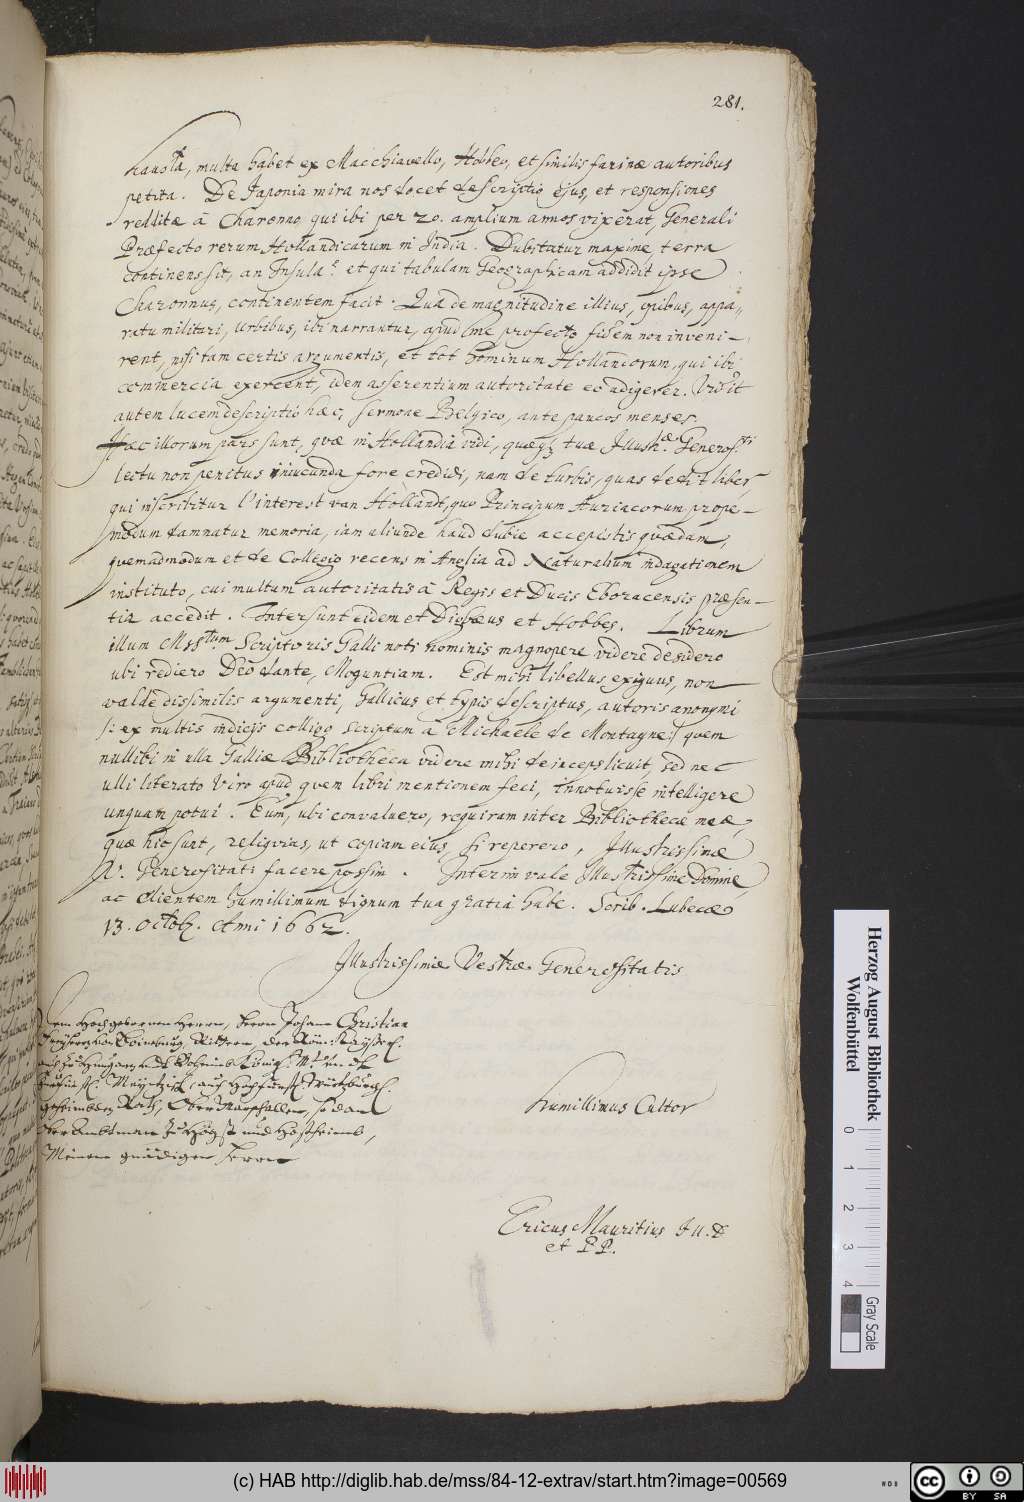 281.
hausta, multa habet ex Macchiavello, Hobbeo, et similis farinæ autoribus
petita. De Iaponia mira nos docet descriptio ejus, et responsiones
redditæ â Charonno, qui ibi per 20. amplium annos vixerat, Generali
Præfecto rerum Hollandicarum in India. Dubitatur maxime, terra
continens sit, an Insula: et qui tabulam Geographicam addidit ipse
Charonnus, continentem facit. Quæ de magnitudine illius, opibus, appa„
ratu militari, Urbibus, ibi narrantur, apud me profecto fidem non inveni-
rent, nisi tam certis argumentis, et tot hominum Hollandorum, qui ibi
commercia exercent, idem asserentium autoritate eò adigerer. Vidit
autem lucem descriptio hæc, sermone Belgico, ante paucos menses.
Hæc illorum pars sunt, quæ in Hollandia vidi, quæq; tuæ Illustr.æ Generos.ti
lectu non penitus iniucunda fore credidi, nam de turbis, quas dedit liber,
qui inscribitur l'interest van Hollandt, quo Principum Auriacorum prope-
modum damnatur memoria, iam aliunde haud dubie accepistis quædam,
quemadmodum et de Collegio recens in Anglia ad Naturalium indagationem
instituto, cui multum autoritatis â Regis et Ducis Eboracensis præsen-
tia accedit. Intersunt eidem et Digbæus et Hobbes. Librum
illum Mss.tum Scriptoris Galli noti nominis magnopere videre desidero
ubi rediero Deo dante, Moguntiam. Est mihi libellus exiguus, non
valde dissimilis argumenti, Gallicus, et typis descriptus, autoris anonymi
/: ex multis indicijs colligo scriptum â Michaele de Montagne :/ quem
nullibi in ulla Galliæ Bibliotheca videre mihi deinceps licuit, sed nec
ulli literato Viro apud quem libri mentionem feci, innotuisse intelligere
unquam potui. Eum, ubi convaluero, requiram inter Bibliothecæ meæ,
quæ hic sunt, reliquias, ut copiam eius, si reperero, Illustrissimæ
V. Generositati facere possim. Interim vale Illustrissime Domine,
ac Clientem humillimum dignum tua gratia habe. Scrib. Lubecæ
13. Octob. Anni 1662.
Illustrissimæ Vestræ Generositatis
Dem Hochgebornen Herrn, Herrn Johann Christian
Freyherrn von Boineburg, Rittern, der Röm: Kayserl.
auch zu Hungarn und Boheimb Königl. M.
Meyntzis. auch Würtzburgl.
geheimbten Rath, Ober Marschallen, so dan
Ober Ambtman zu Höchst und Hofheimb,
Meinem gnädigen Herrn
Humillimus Cultor
Ericus Mauritius JU.D
et P P.
Herzog August Bibliothek
Wolfenbüttel
0 1 2 3 4
Gray Scale
(c) HAB http://diglib.hab.de/mss/84-12-extrav/start.htm?image=00569
cc BY SA